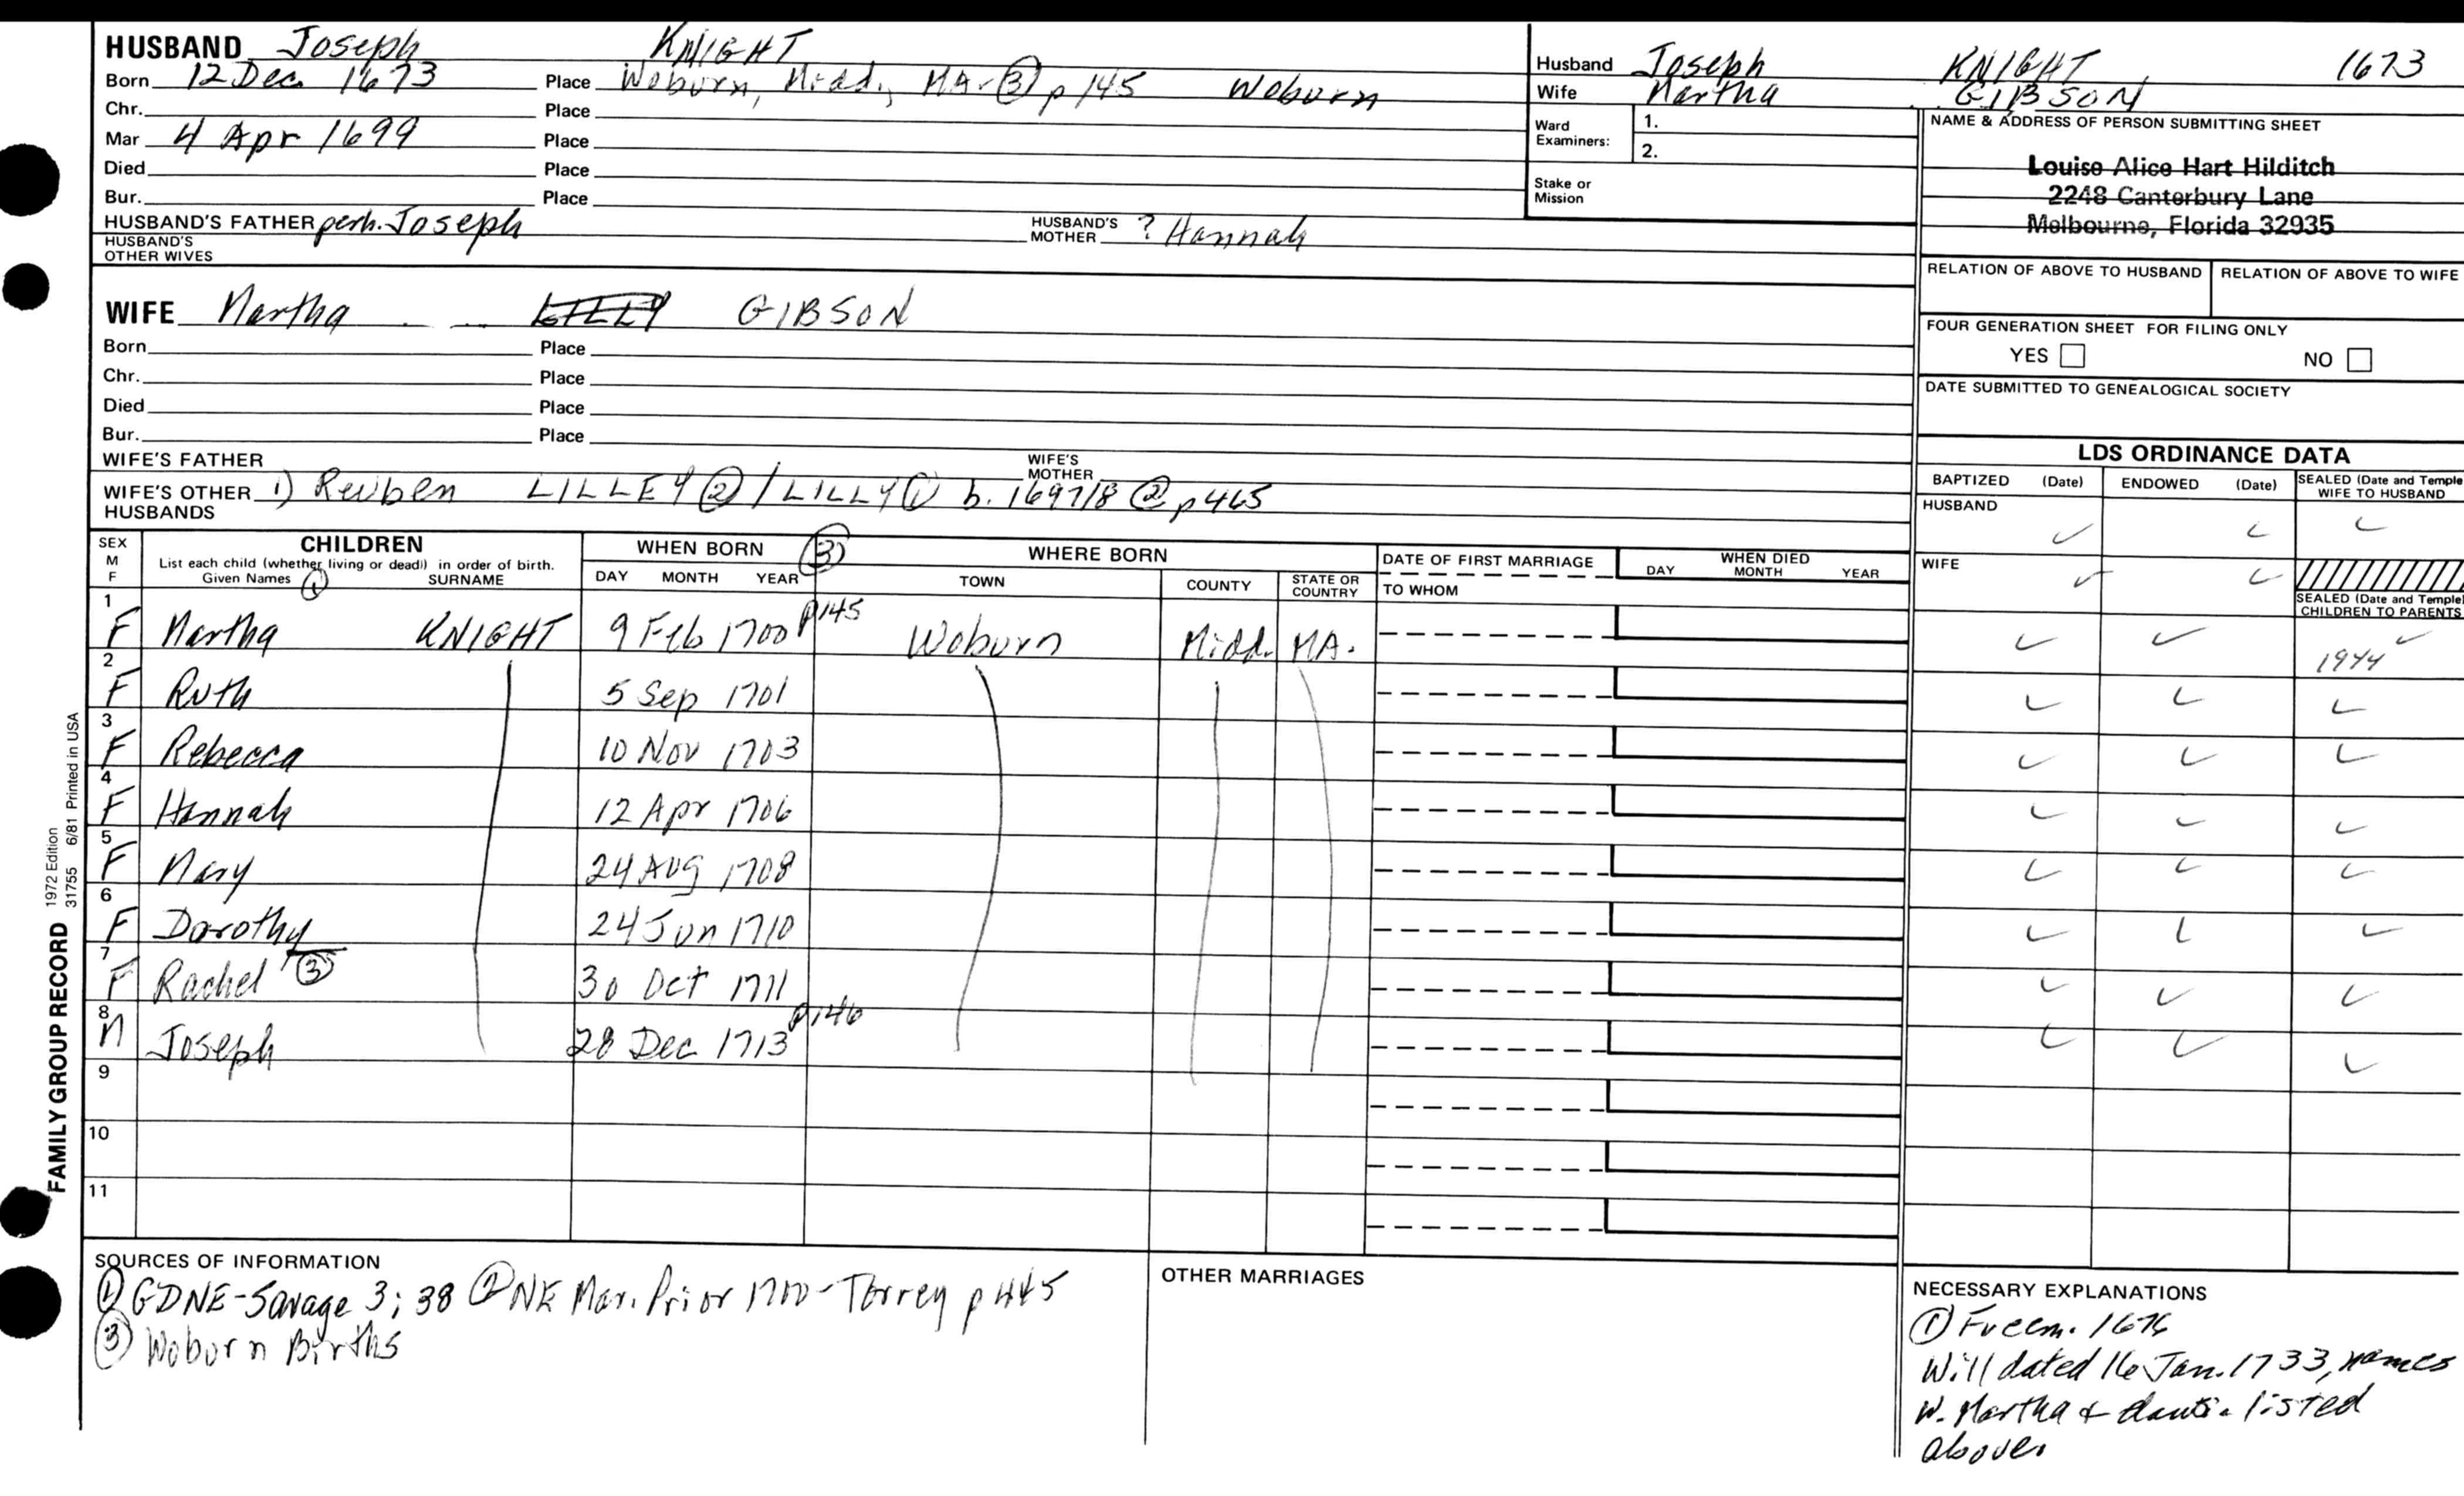 HUSBAND Joseph KNIGHT
Born 12 Dec. 1673 Place Woburn, Midd., MA. ③ p 145 Woburn
Chr. Place
Mar 4 Apr 1699 Place
Died Place
Bur. Place
HUSBAND'S FATHER perh. Joseph HUSBAND'S MOTHER ? Hannah
HUSBAND'S
OTHER WIVES
WIFE Martha LILLY GIBSON
Born Place
Chr. Place
Died Place
Bur. Place
WIFE'S FATHER WIFE'S MOTHER
WIFE'S OTHER HUSBANDS 1) Reuben LILLEY ② / LILLY ① b. 1697/8 ② p 465
Husband Joseph KNIGHT 1673
Wife Martha GIBSON
Ward Examiners: 1.
2.
Stake or
Mission
NAME & ADDRESS OF PERSON SUBMITTING SHEET
Louise Alice Hart Hilditch
2248 Canterbury Lane
Melbourne, Florida 32935
RELATION OF ABOVE TO HUSBAND RELATION OF ABOVE TO WIFE
FOUR GENERATION SHEET FOR FILING ONLY
YES NO
DATE SUBMITTED TO GENEALOGICAL SOCIETY
LDS ORDINANCE DATA
BAPTIZED (Date) ENDOWED (Date) SEALED (Date and Temple) WIFE TO HUSBAND
HUSBAND ✓ ✓ ✓
WIFE ✓ ✓
SEALED (Date and Temple)
CHILDREN TO PARENTS
SEX M F CHILDREN WHEN BORN ③ WHERE BORN DATE OF FIRST MARRIAGE WHEN DIED
List each child (whether living or dead) in order of birth.
Given Names ① SURNAME DAY MONTH YEAR TOWN COUNTY STATE OR COUNTRY TO WHOM DAY MONTH YEAR
1 F Martha KNIGHT 9 Feb 1700 p145 Woburn Midd. MA. ✓ ✓ ✓ 1944
2 F Ruth 5 Sep 1701 ✓ ✓ ✓
3 F Rebecca 10 Nov 1703 ✓ ✓ ✓
4 F Hannah 12 Apr 1706 ✓ ✓ ✓
5 F Mary 24 Aug 1708 ✓ ✓ ✓
6 F Dorothy 24 Jun 1710 ✓ ✓ ✓
7 F Rachel ③ 30 Oct 1711 ✓ ✓ ✓
8 M Joseph 28 Dec 1713 p146 ✓ ✓ ✓
9
10
11
FAMILY GROUP RECORD 1972 Edition
31755 6/81 Printed in USA
SOURCES OF INFORMATION
① GDNE-Savage 3; 38 ② NE Mar. Prior 1700 - Torrey p 445
③ Woburn Births
OTHER MARRIAGES
NECESSARY EXPLANATIONS
① Freem. 1676
Will dated 16 Jan. 1733, names
W. Martha & daus. listed
above.